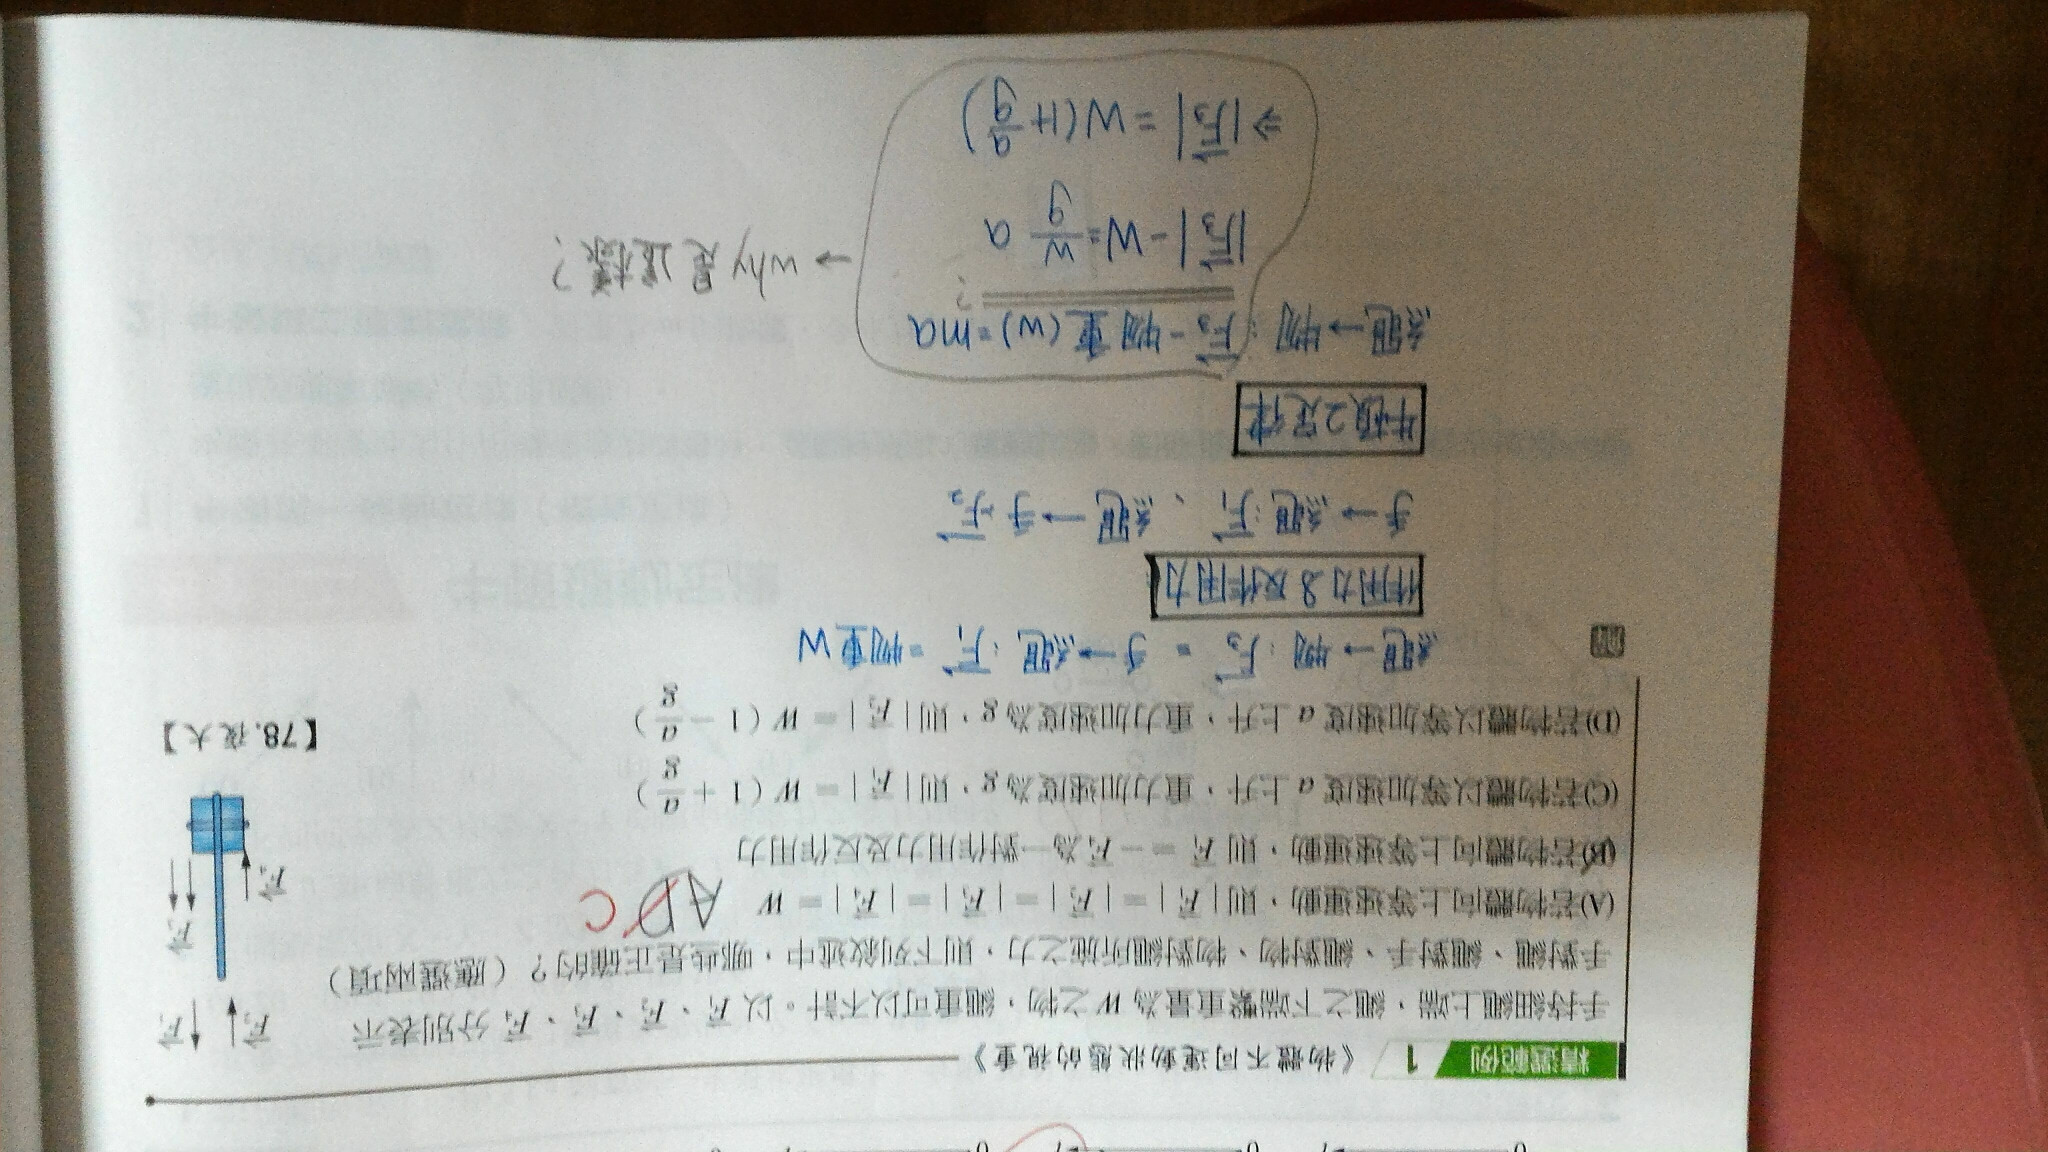 精選範例 1 《物體不同運動狀態的視重》
手持細繩上端,繩之下端繫重量為W之物,繩重可以不計。以F₁、F₂、F₃、F₄分別表示
手對繩、繩對手、繩對物、物對繩所施之力,則下列敘述中,哪些是正確的?(應選兩項)
(A)若物體向上等速運動,則|F₁|=|F₂|=|F₃|=|F₄|=W
ADC
(B)若物體向上等速運動,則F₁=-F₄為一對作用力及反作用力
(C)若物體以等加速度a上升,重力加速度為g,則|F₃|=W(1+a/g)
(D)若物體以等加速度a上升,重力加速度為g,則|F₄|=W(1-a/g)
【78.夜大】
F₂
F₁
F₃
F₄
解
繩→物:F₃=手→繩:F₁=物重W
作用力&反作用力
手→繩:F₁、繩→手:F₂
牛頓2定律
繩→物:F₃-物重(W)=ma
?
|F₃|-W=W/g a
→why是這樣?
⇒|F₃|=W(1+a/g)